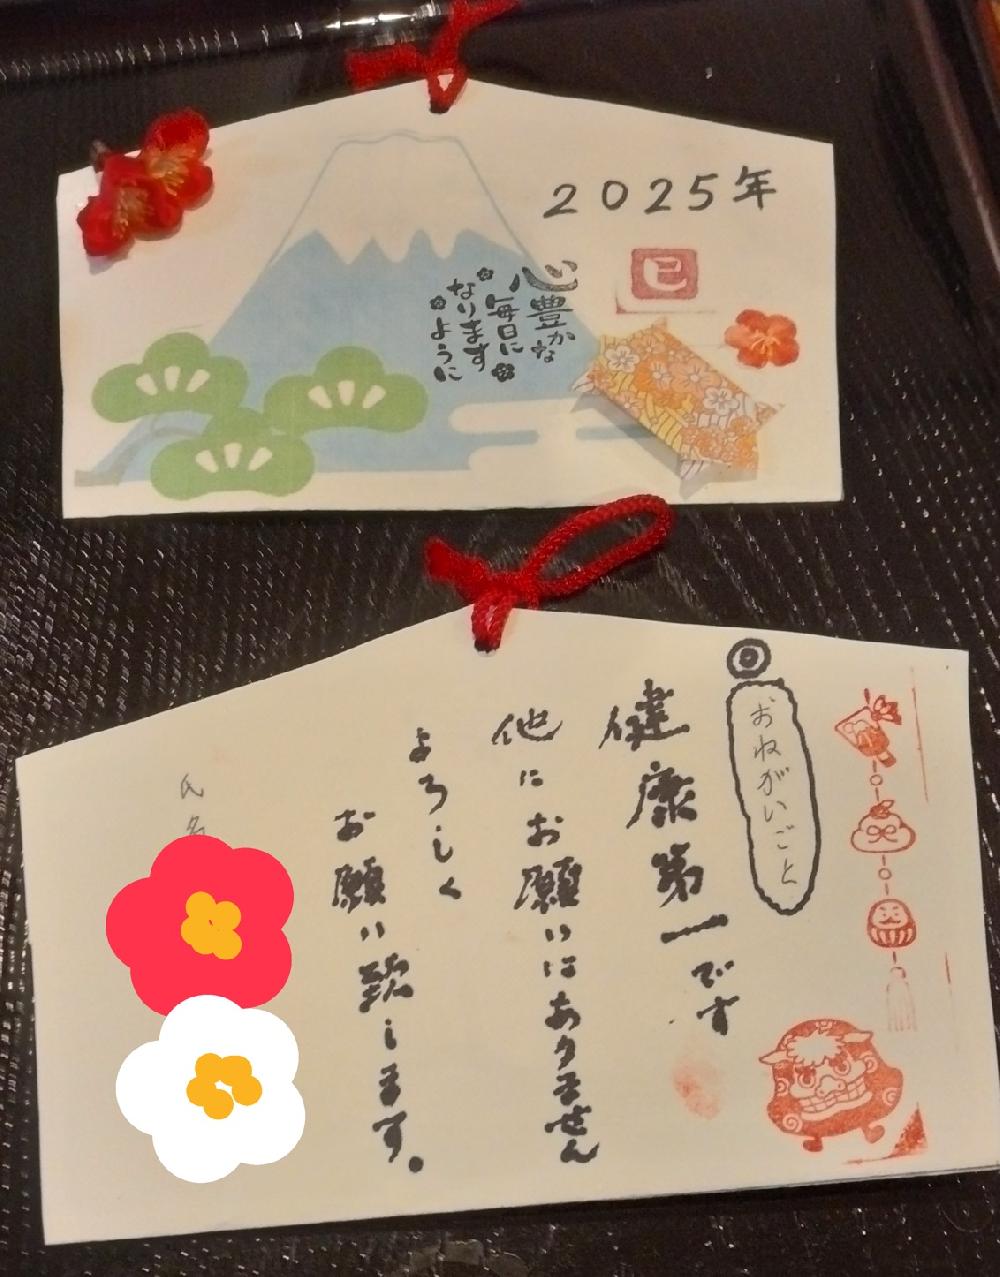 2025年
巳
心豊かな
毎日に
なります
ように
おねがいごと
健康第一です
他にお願いはありません
よろしく
お願い致します。
氏名